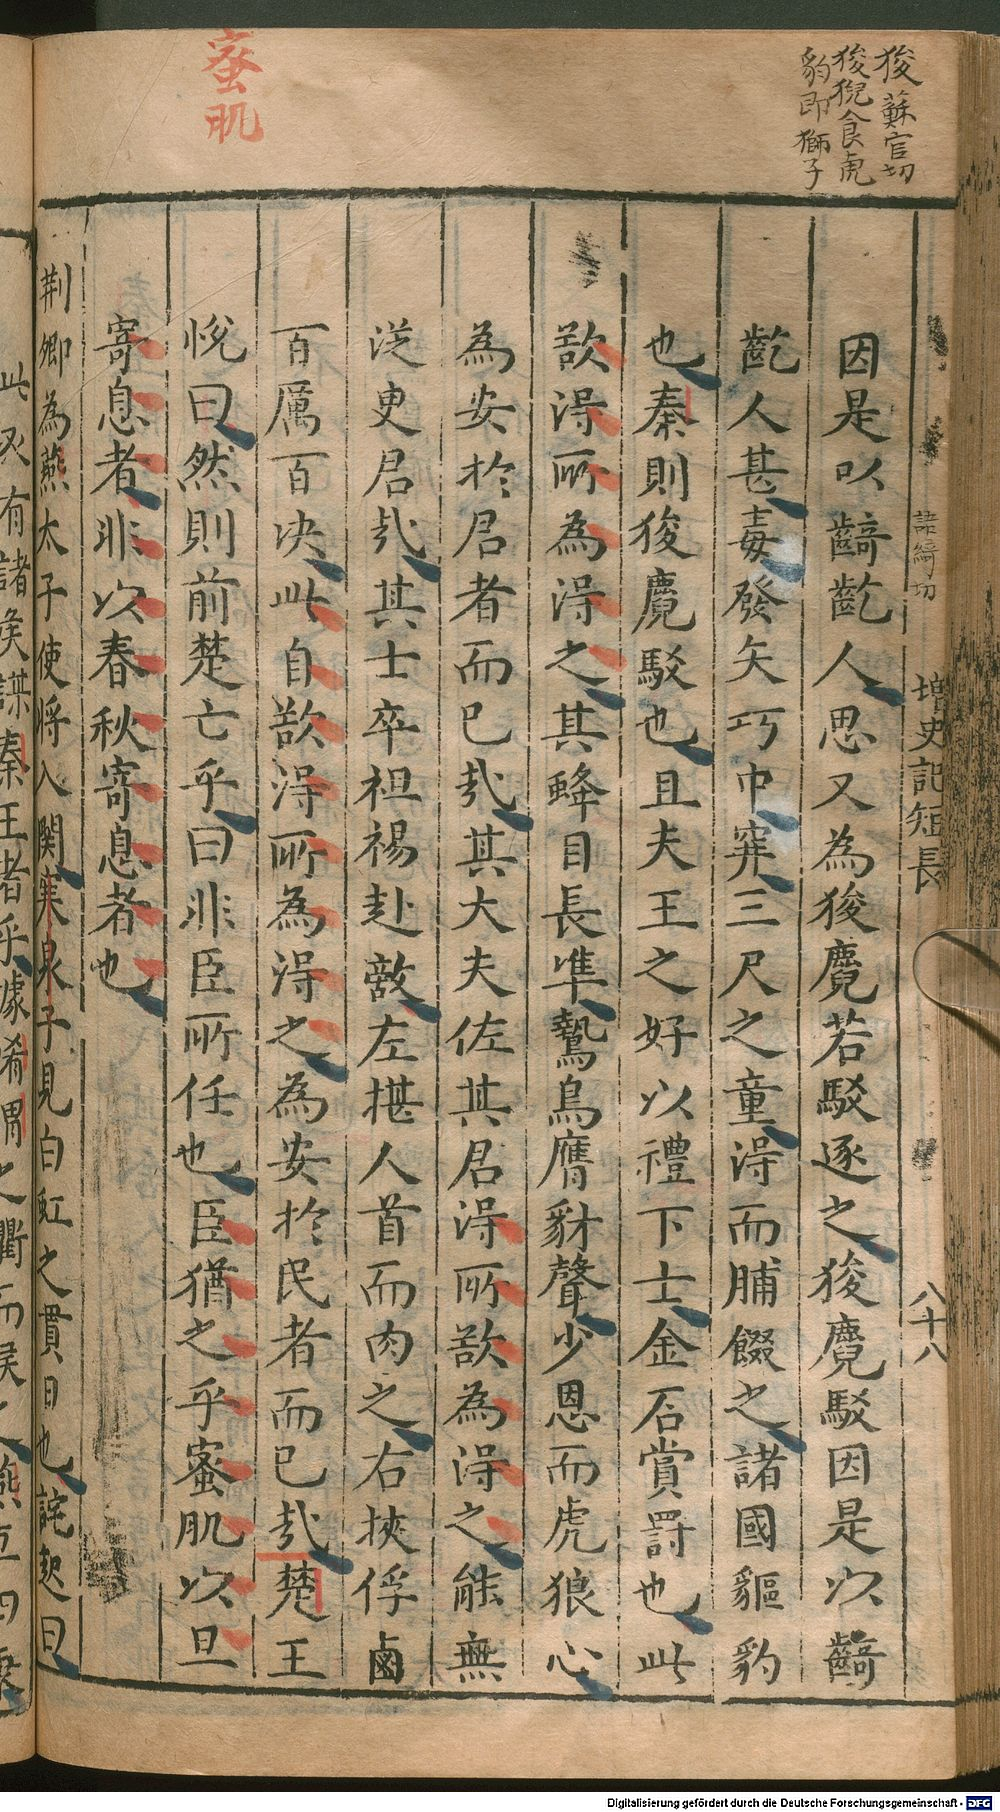 狻蘇官切
狻猊食虎
豹即獅子
蜜肌
諸綺切
增史記短長
八十八
因是以齮齕人思又為狻麑若駁逐之狻麑駁因是以齮
齕人甚毒發矢巧巾穽三尺之童淂而脯餟之諸國貙豹
也秦則狻麑駁也且夫王之好以禮下士金石賞罰也此
欲淂所為淂之其蜂目長準鷙鳥膺豺聲少恩而虎狼心
為安於君者而已㢤其大夫佐其君淂所欲為淂之能無
從更君㢤其士卒袒裼赴敵左揕人首而肉之右挾俘鹵
百厲百决此自欲淂所為淂之為安於民者而已㢤楚王
悅曰然則前楚亡乎曰非臣所任也臣猶之乎蜜肌以旦
寄息者非以春秋寄息者也
荊卿為燕太子使將入關寒泉子見白虹之貫日也詫起曰
此又有諸侯謀秦王者乎據脩渭之衢而候之燕
Digitalisierung gefördert durch die Deutsche Forschungsgemeinschaft - DFG